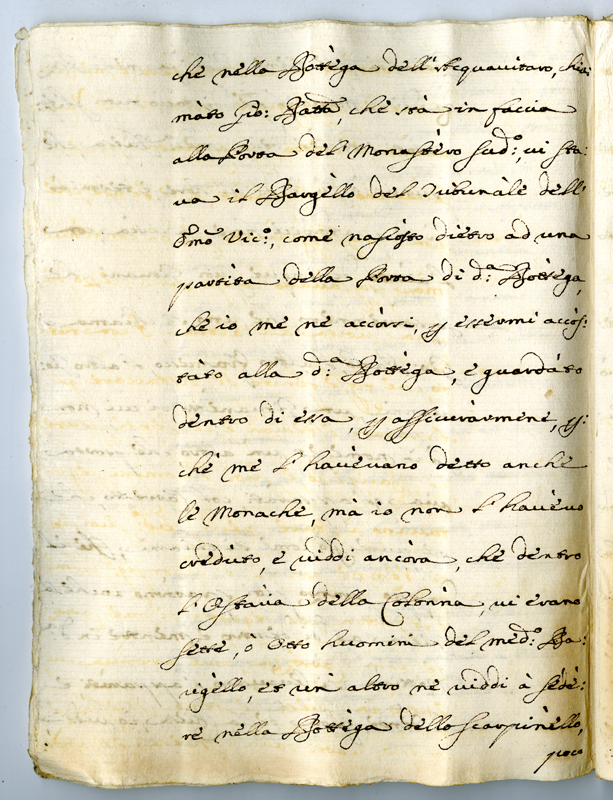 che nella Bottèga dell'Acquavitaro, chia:
màto Gio: Batta, che stà in faccia
alla Porta del Monastèro sud:º, vi sta:
va il Bargèllo del Tribunàle dell'
Emo Vic:º, come nascosto dietro ad una
partita della Porta di d:ª Bottèga,
che io me ne accòrsi, p essermi accos:
tàto alla d:ª Bottèga, e guardàto
dentro di essa, p assicuràrmene, p:
chè me l'havèvano detto anche
le Monache, mà io non l'havèvo
credùto, e viddi ancòra, che dentro
l'Ostaria della Colonna, vi erano
sette, ò Otto huomini del med:º Ba:
rigèllo, et un' altro ne viddi à sedè:
re nella Bottèga dello scarpinèllo,
poco